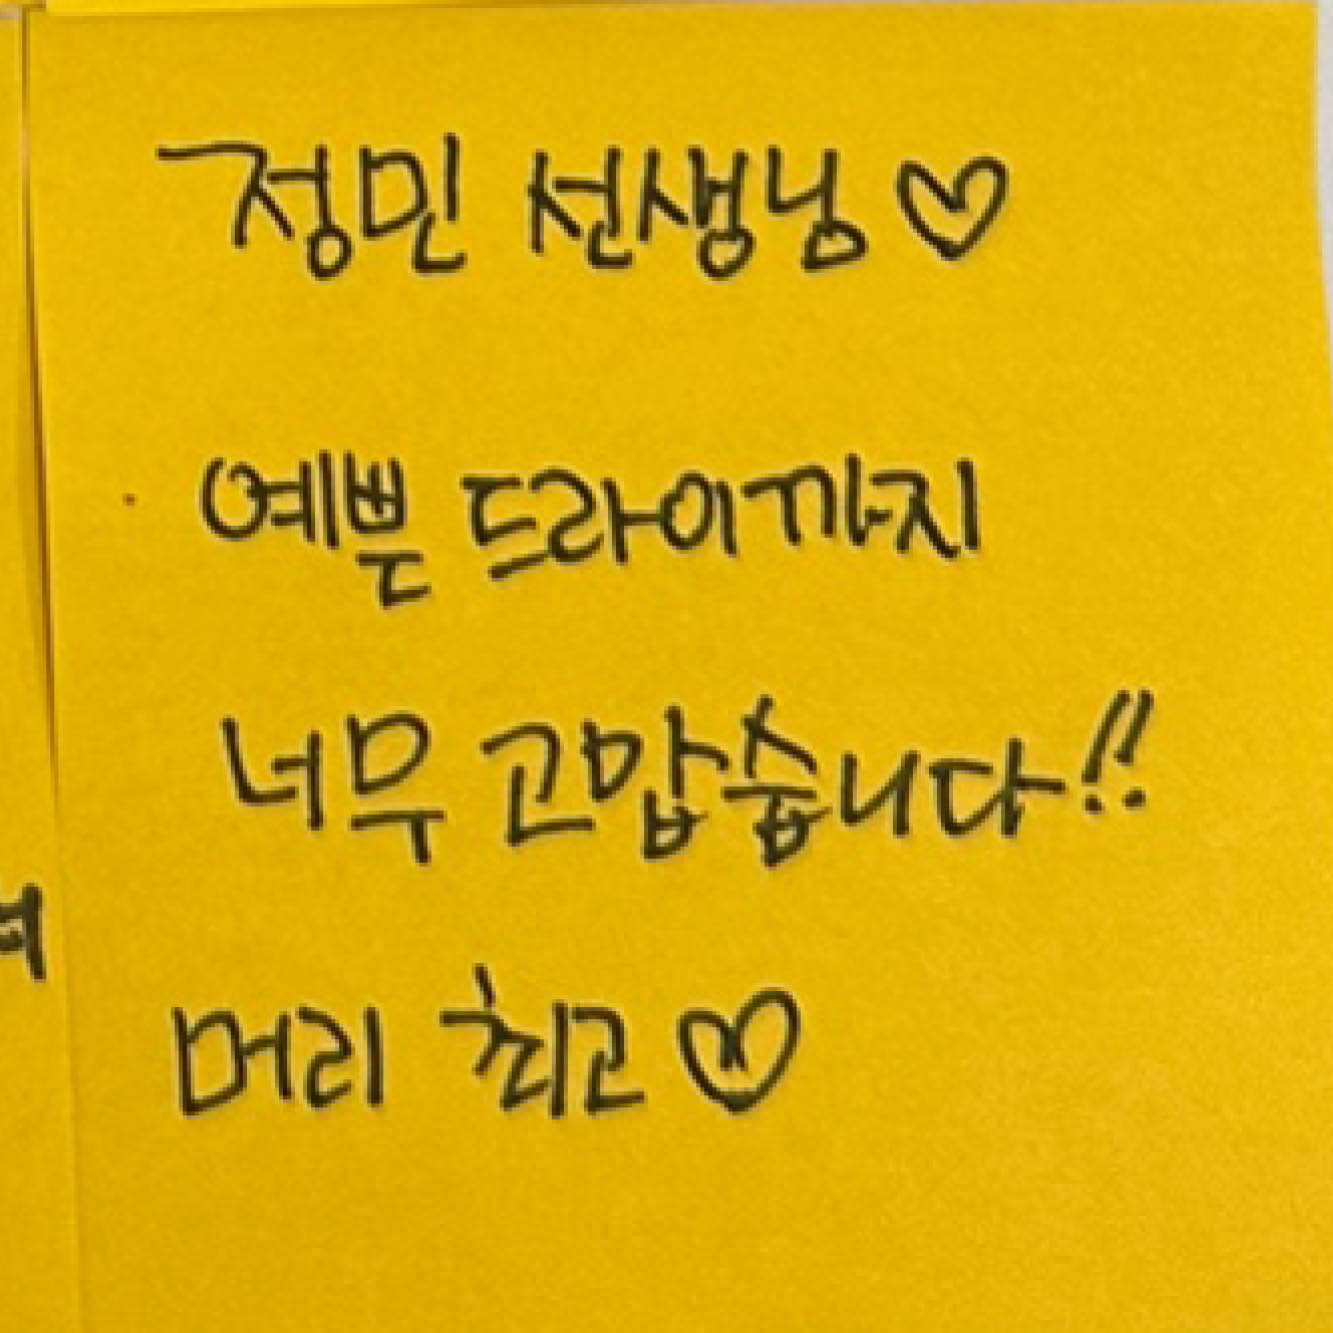 정민 선생닝♡
예쁜 드라이까지
너무 고맙습니다!!
머리 최고♡